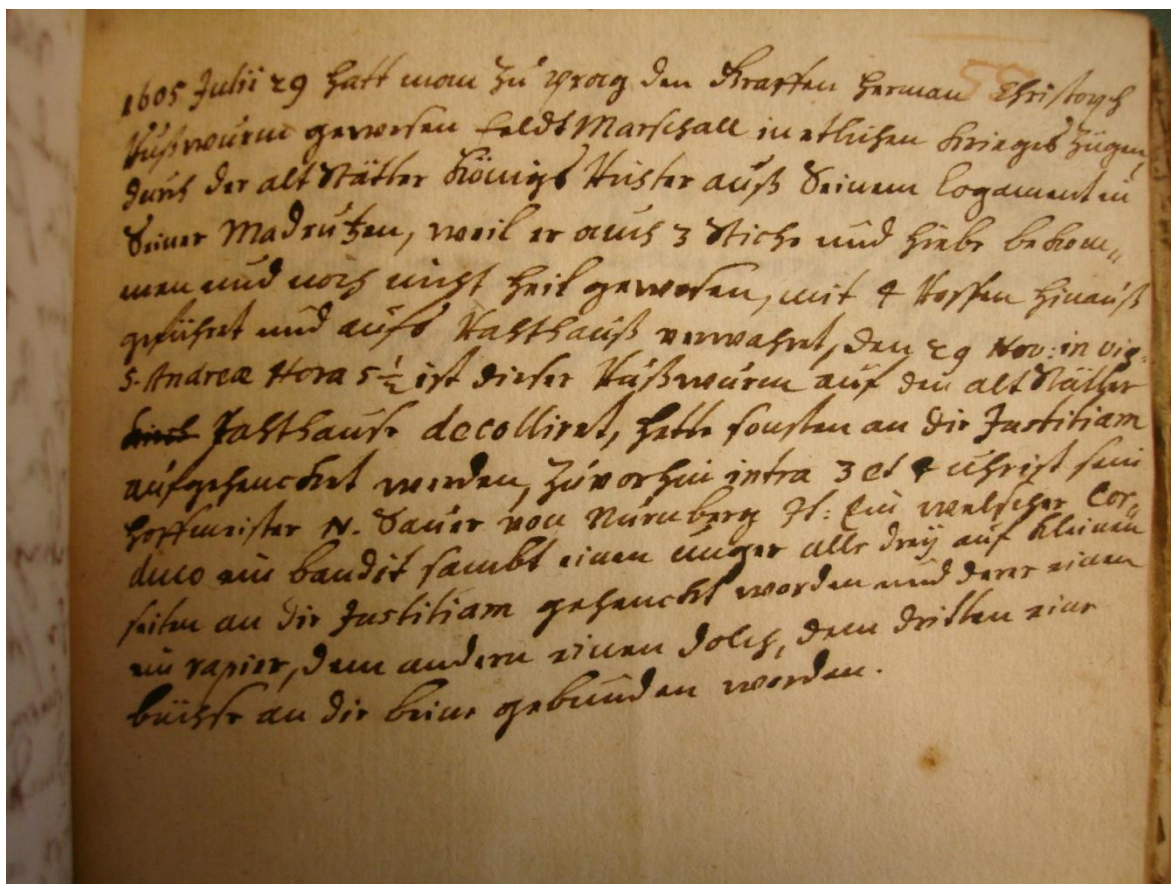 1605 Julii 29 hatt man zu Prag den Graffen Herman Christoph
Rußwurm gewesen Feldt Marschall in etlichen Krieges Zügen,
durch der alt Stätter Königs Richter auß Seinem Logament in
Seiner Madrutzen, weil er auch 3 Stiche und hiebe bekom„
men und noch nicht heil gewesen, mit 4 Rossen hinauß
geführet und aufs Rahthauß verwahret, den 29 Nov: in vig.
S. Andreæ Hora 5½ ist dieser Rußwurm auf den alt Stätter
Rahthause decolliret, hette sonsten an die Justitiam
aufgehencket werden, zuvorhin intra 3 et 4 uhr ist sein
hoffmeister N. Sauer von Nürnberg It: Ein welscher Cor„
duco ein bandit sambt einen unger alle dreÿ auf kleinen
seiten an die Justitiam gehenckt worden und derer einem
ein rapier, dem andern einen dolch, dem dritten eine
büchse an die beine gebunden worden.